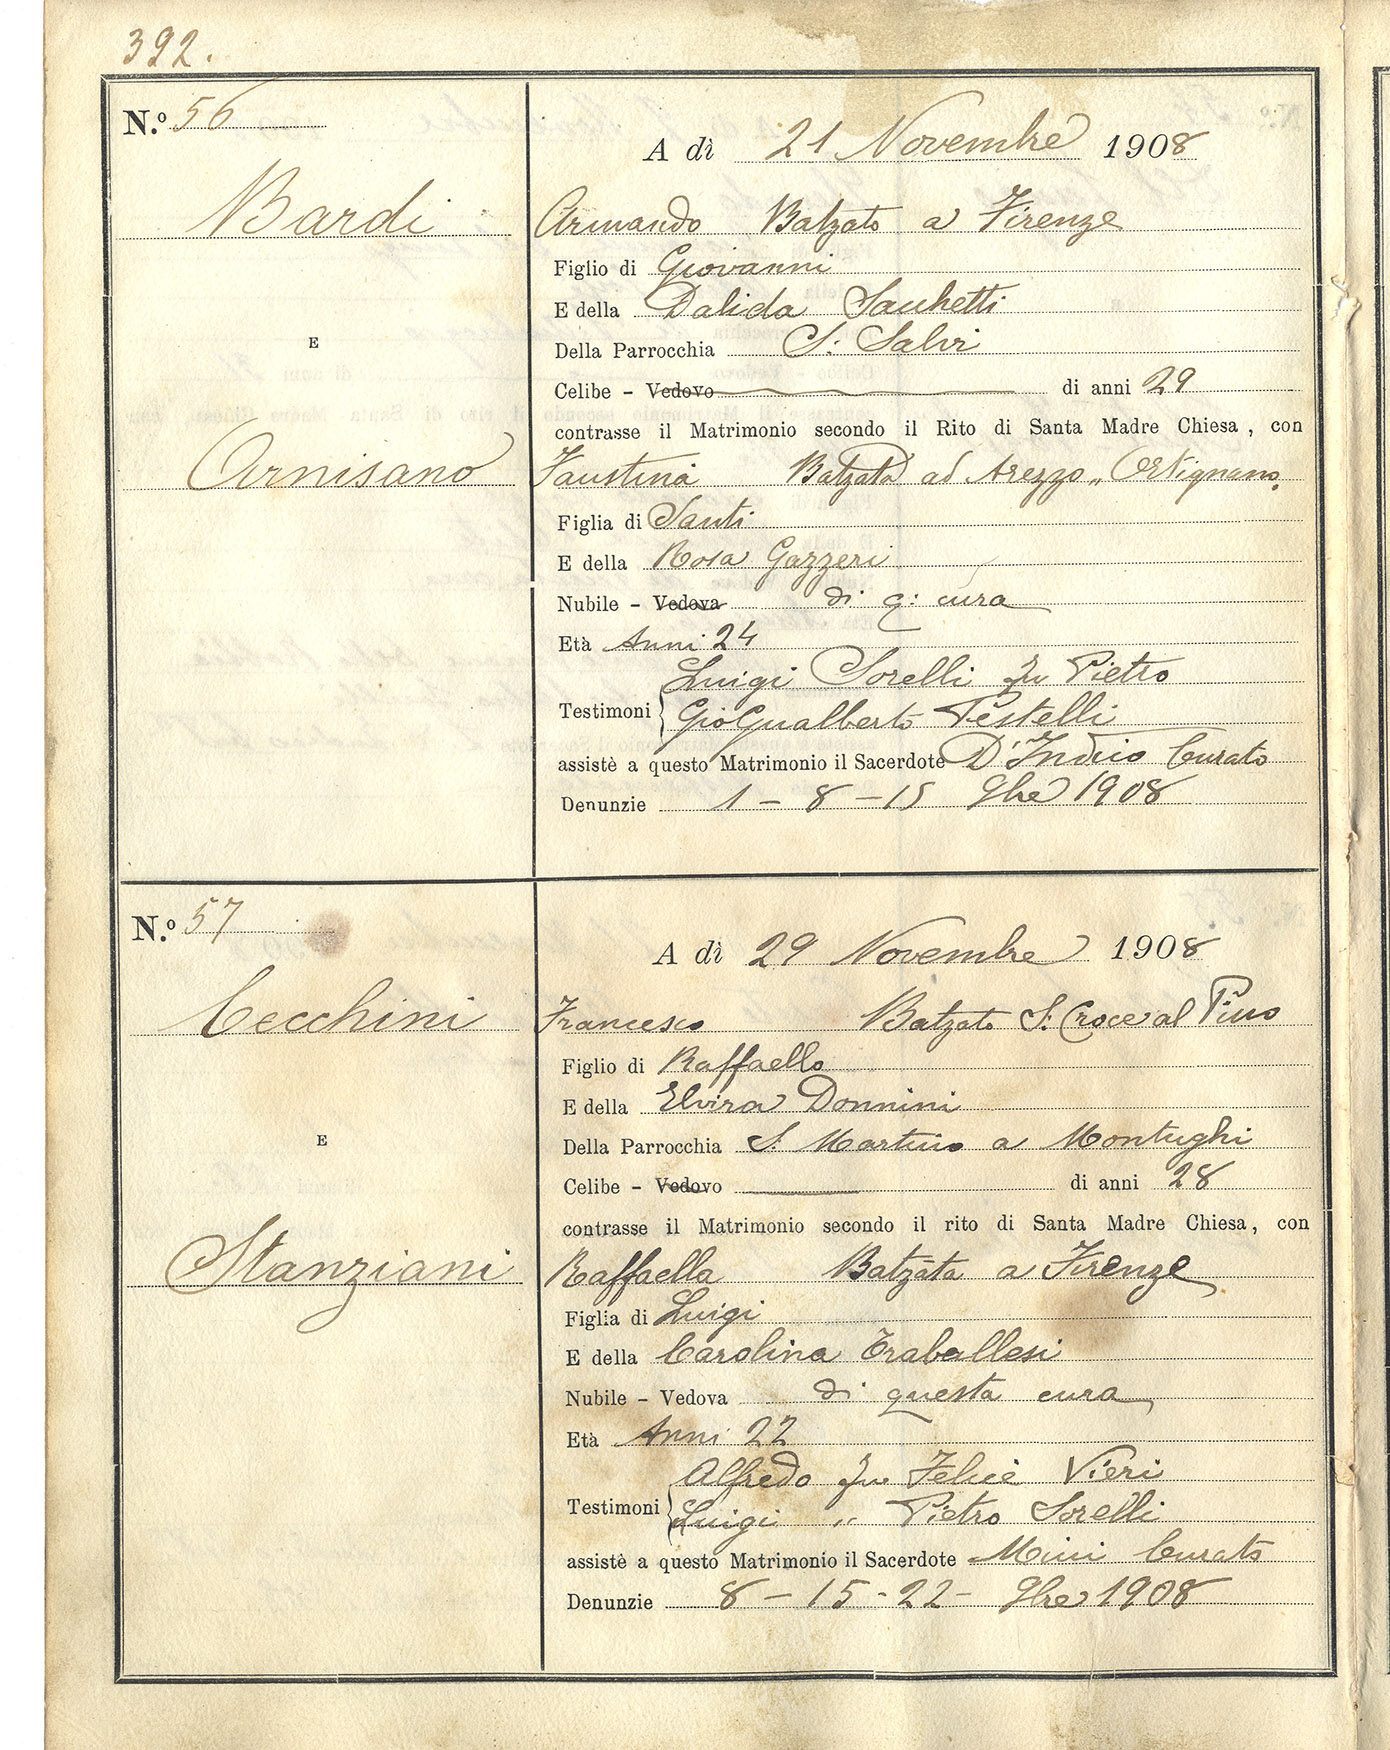 392.
N.º 56
A dì 21 Novembre 1908
Bardi
Armando Batzato a Firenze
Figlio di Giovanni
E della Dalida Sachetti
Della Parrocchia S. Salvi
E
Celibe - Vedovo di anni 29
contrasse il Matrimonio secondo il Rito di Santa Madre Chiesa, con
Arnisano
Faustina Batzata ad Arezzo „ Ortignano.
Figlia di Santi
E della Rosa Gazzeri
Nubile - Vedova di q: cura
Età Anni 24
Luigi Sorelli fu Pietro
Testimoni
Gio Gualberto Pestelli
assistè a questo Matrimonio il Sacerdote D'Indico Curato
Denunzie 1 - 8 - 15 9bre 1908
N.º 57
A dì 29 Novembre 1908
Cecchini
Francesco Batzato S. Croce al Pino
Figlio di Raffaello
E della Elvira Donnini
E
Della Parrocchia S. Martino a Montughi
Celibe - Vedovo di anni 28
contrasse il Matrimonio secondo il rito di Santa Madre Chiesa, con
Stanziani
Raffaella Batzata a Firenze
Figlia di Luigi
E della Carolina Traballesi
Nubile - Vedova di questa cura
Età Anni 22
Alfredo fu Felice Vieri
Testimoni
Luigi „ Pietro Sorelli
assistè a questo Matrimonio il Sacerdote Mini Curato
Denunzie 8 - 15 - 22 - 9bre 1908